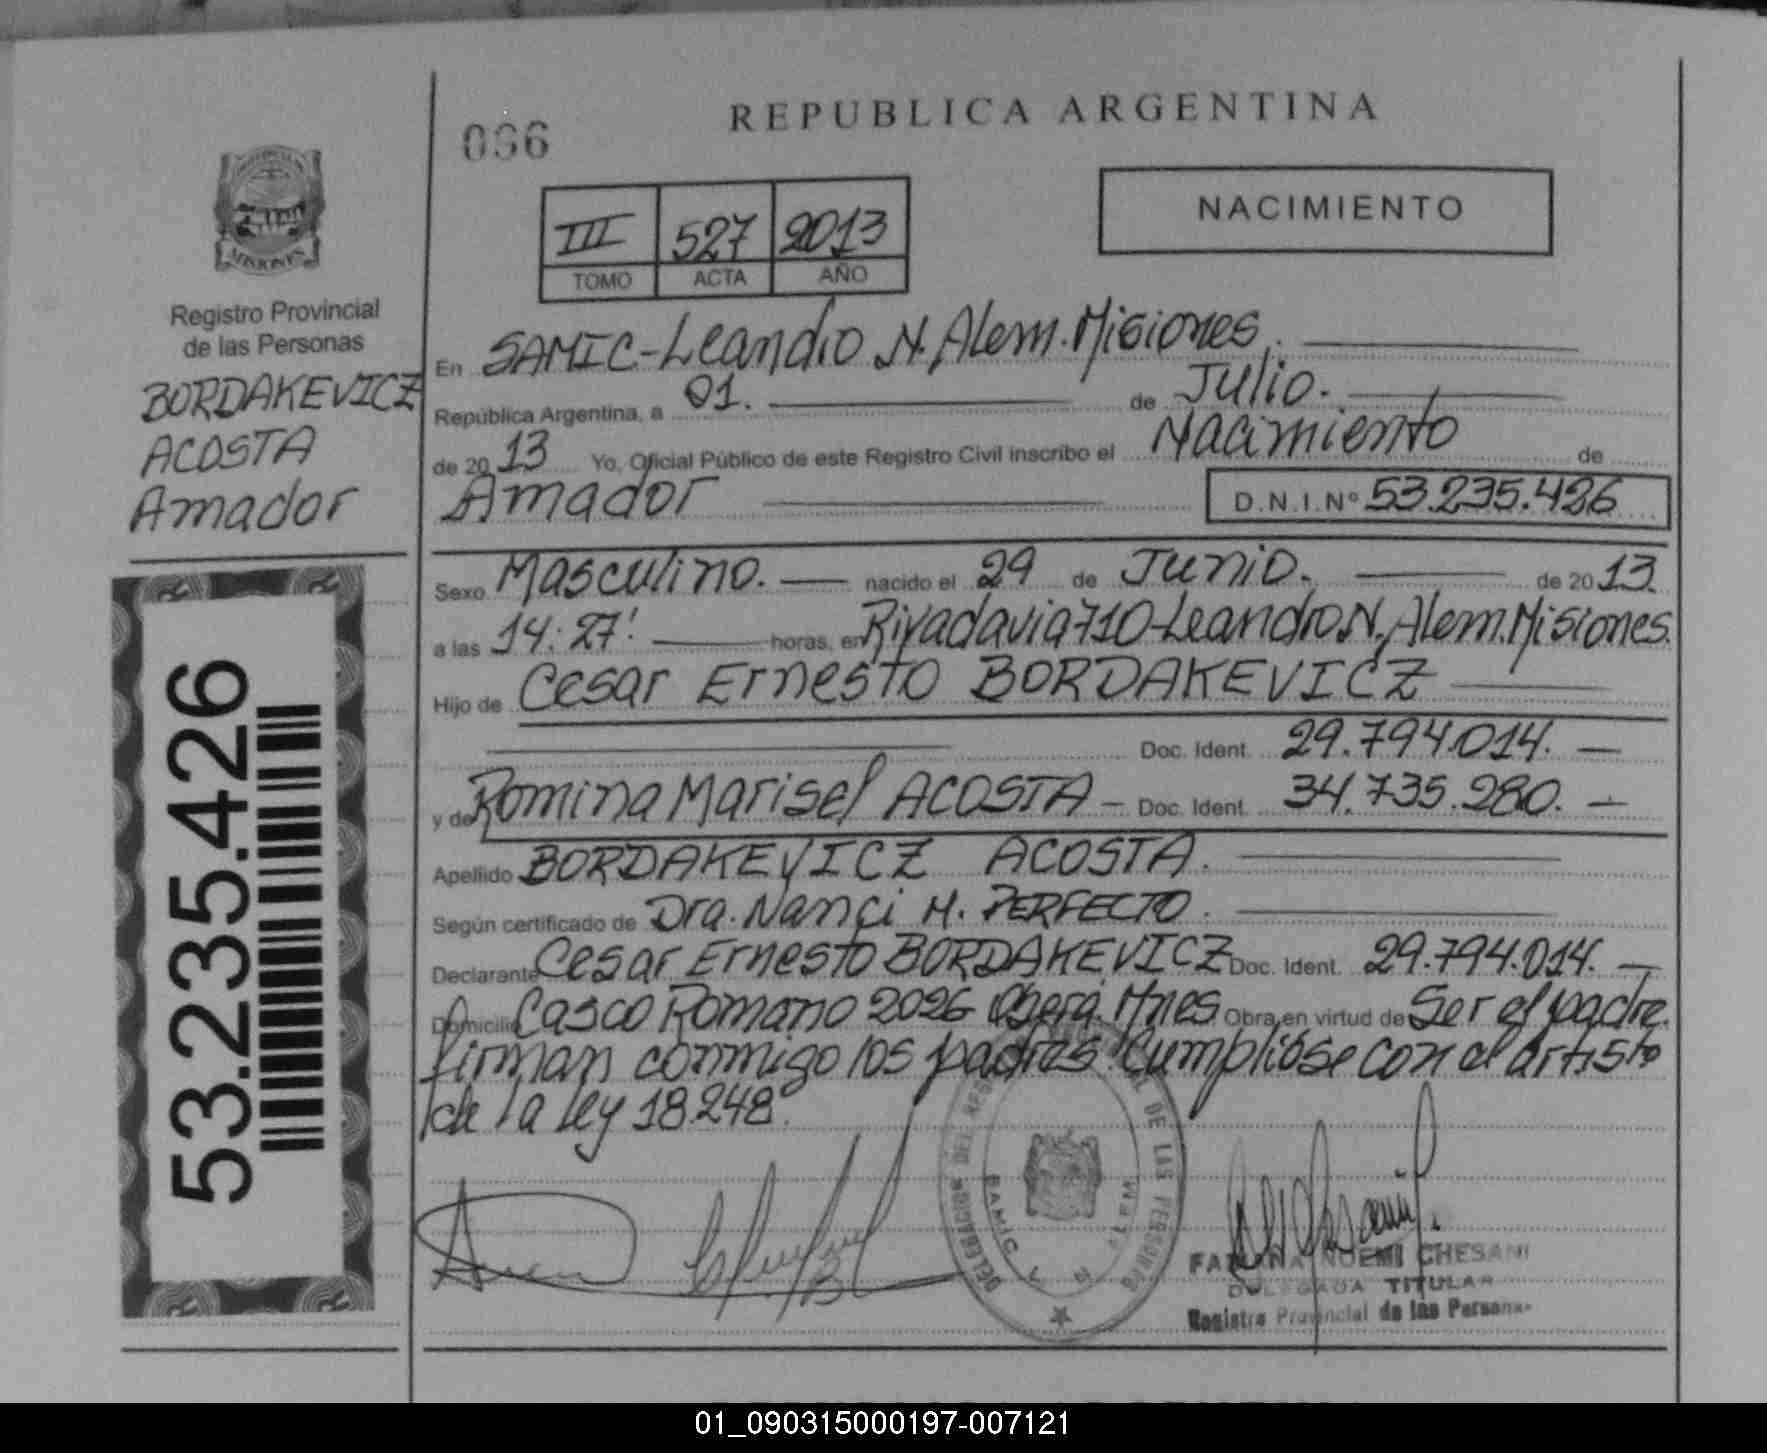 066
REPUBLICA ARGENTINA
NACIMIENTO
III 527 2013
TOMO ACTA AÑO
PROVINCIA DE
MISIONES
Registro Provincial
de las Personas
BORDAKEVICZ
ACOSTA
Amador
53.235.426
En SAMIC-Leandro N. Alem. Misiones.
República Argentina, a 01. de Julio.
de 2013 Yo, Oficial Público de este Registro Civil inscribo el Nacimiento de
Amador D.N.I.Nº 53.235.426
Sexo Masculino. nacido el 29 de Junio. de 2013.
a las 14:27' horas, en Rivadavia 710-Leandro N. Alem. Misiones.
Hijo de Cesar Ernesto BORDAKEVICZ
Doc. Ident. 29.794.014.
y de Romina Marisel ACOSTA Doc. Ident. 34.735.280.
Apellido BORDAKEVICZ ACOSTA.
Según certificado de Dra. Nanci M. PERFECTO.
Declarante Cesar Ernesto BORDAKEVICZ Doc. Ident. 29.794.014.
Domicilio Casco Romano 2026 Oberá. Mnes. Obra en virtud de Ser el padre.
firman conmigo los padres. Cumplióse con el art. 5to
de la ley 18.248.
DELEGACION DEL REG DE LAS PERSONAS
SAMIC L N ALEM
FABIANA NOEMI CHESANI
DELEGADA TITULAR
Registro Provincial de las Personas
01_090315000197-007121